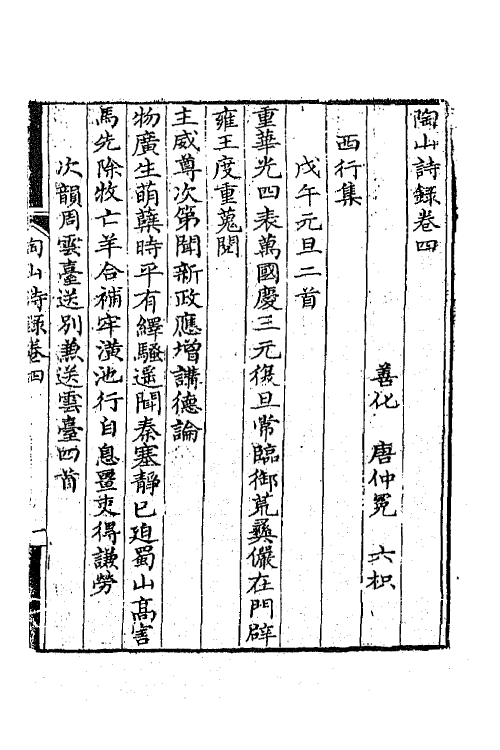 陶山詩録卷四
善化　唐仲冕　六枳
西行集
戊午元旦二首
重華光四表萬國慶三元復旦常臨御茪彞儼在門辟
雍王度重蒐閱
主威尊次第聞新政應增講德論
物廣生萌蘖時平有繹騷遥聞秦塞靜已迫蜀山髙害
馬先除牧亡羊合補牢潢池行自息置吏得謙勞
次韻周雲臺送别兼送雲臺四首
陶山詩録卷四
一